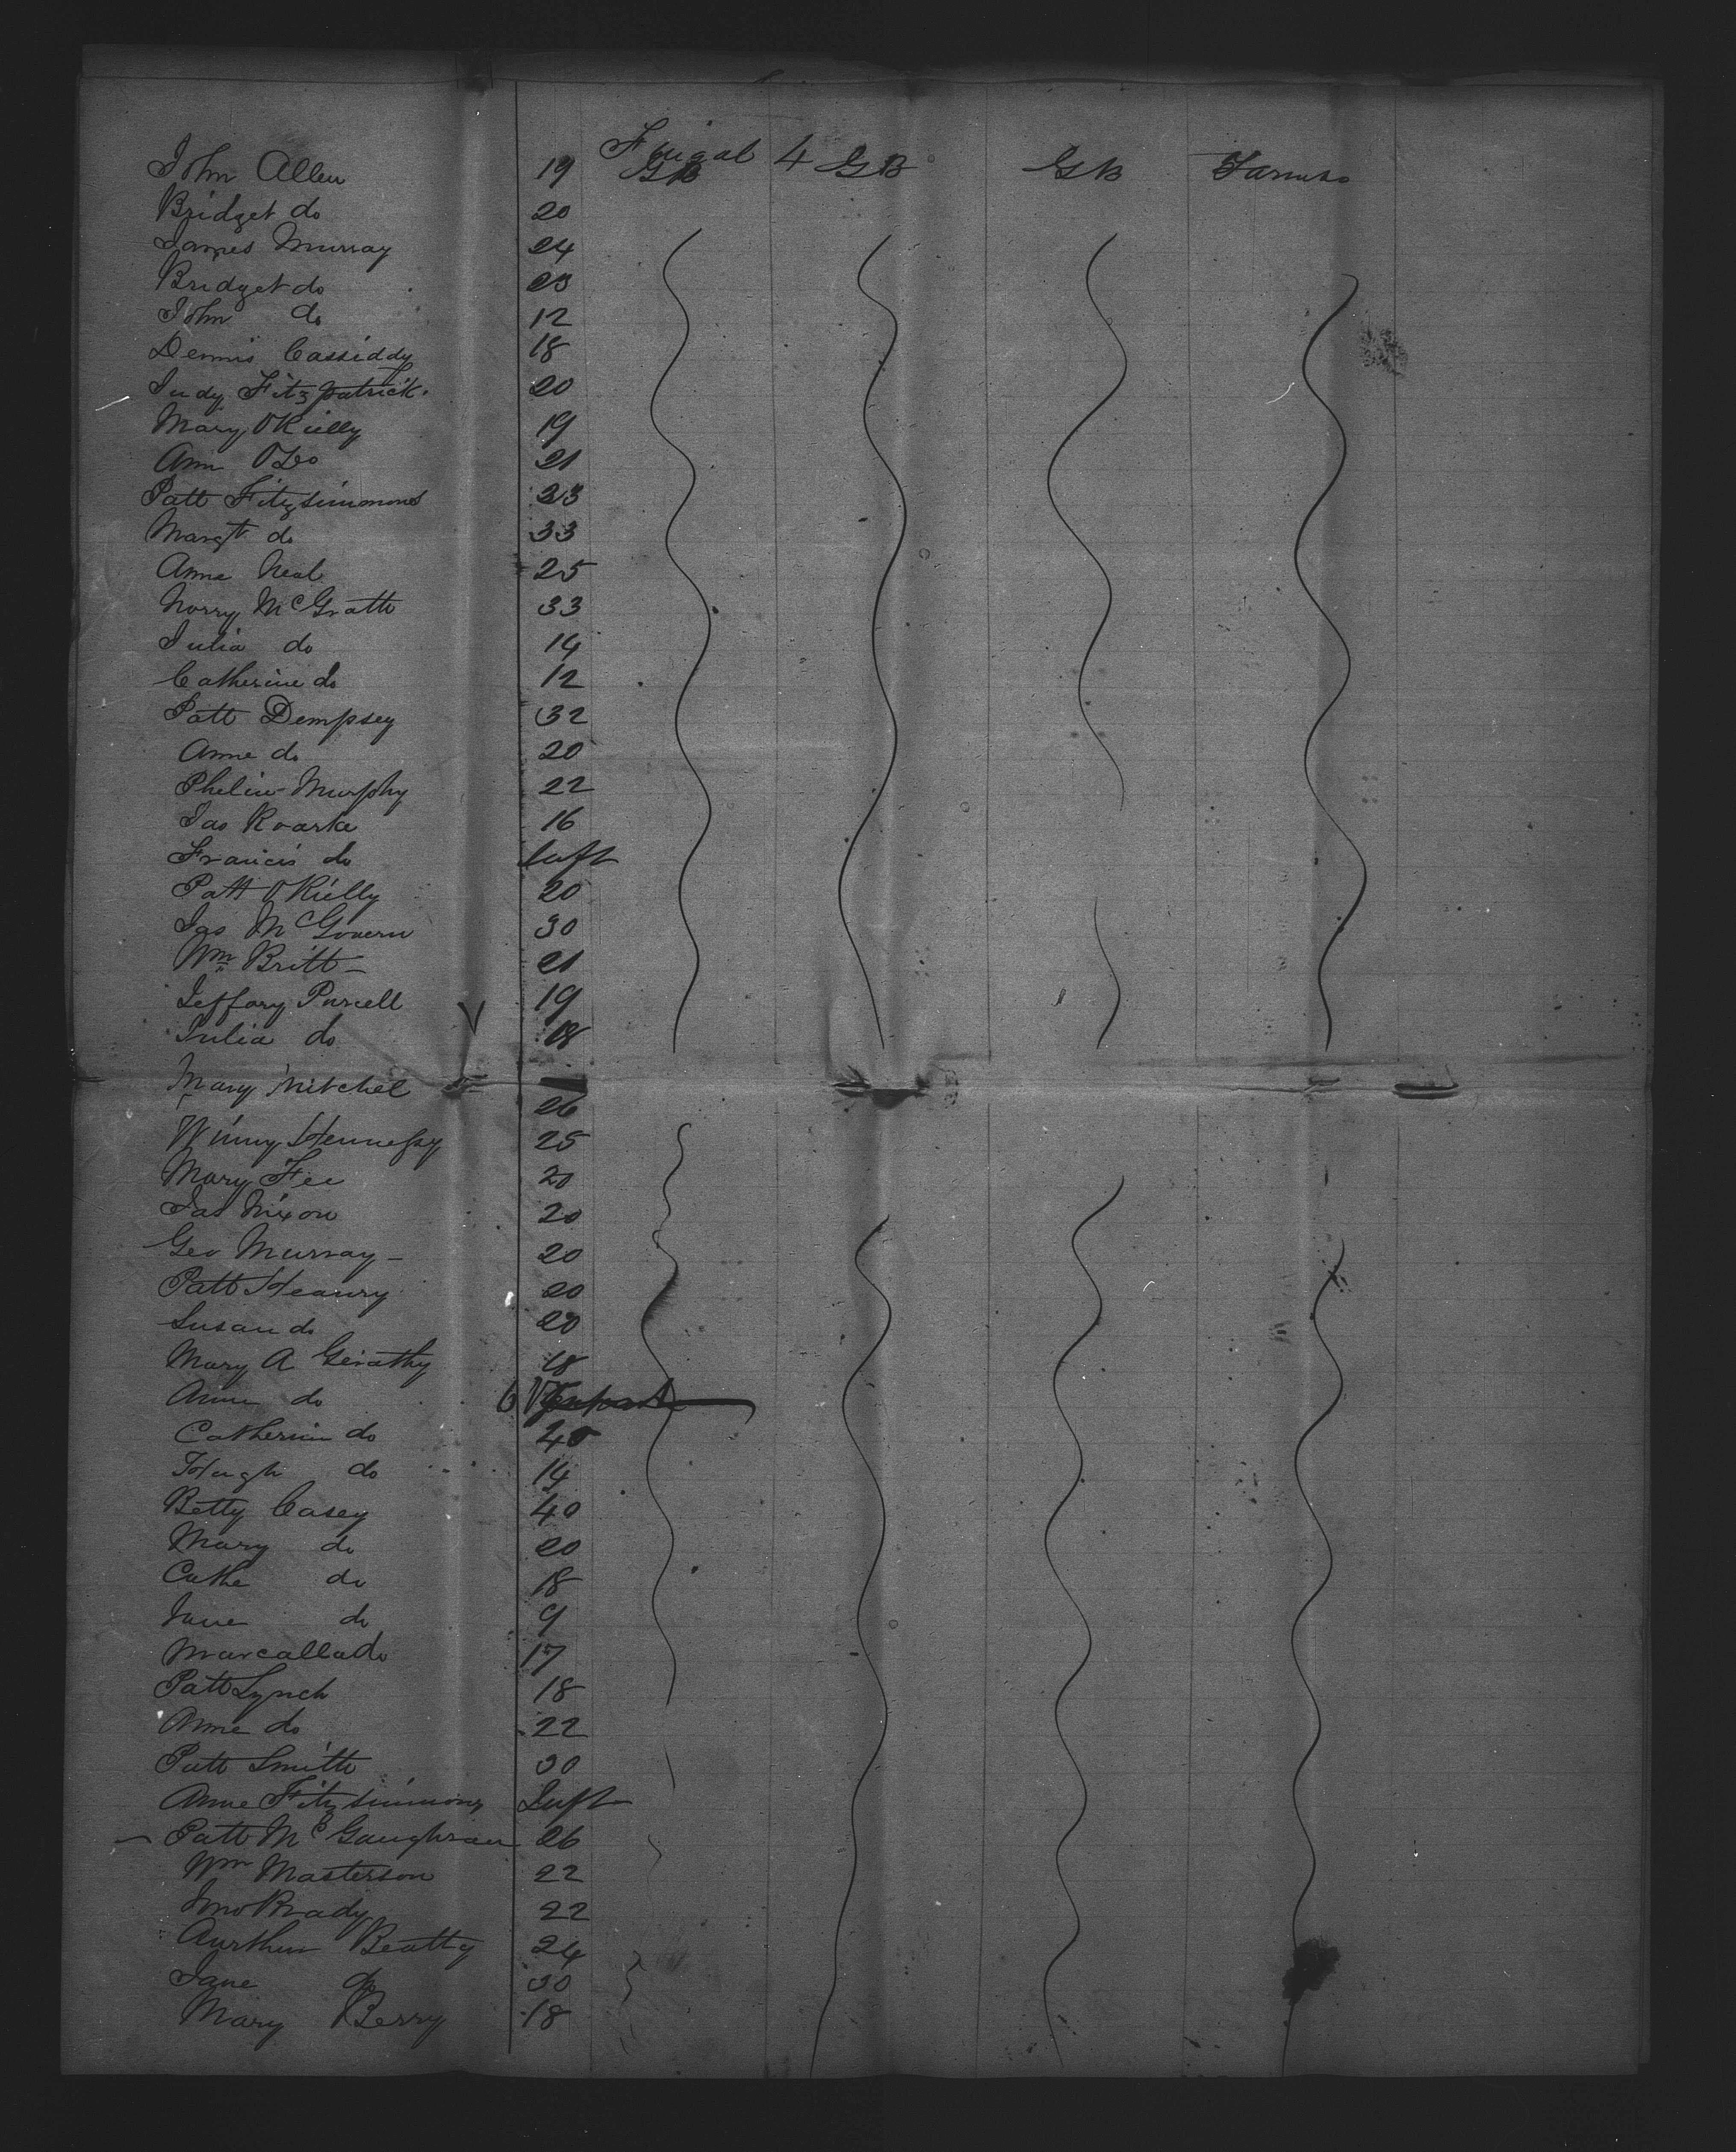 Frugal 4
John Allen 19 GB GB GB Farmer
Bridget do 20
James Murray 24
Bridget do 23
John do 12
Dennis Cassiddy 18
Judy Fitzpatrick 20
Mary OKielly 19
Ann O Do 21
Patt Fitzsimmons 23
Margt do 33
Anne Neal 25
Norry McGrath 33
Julia do 14
Catherine do 12
Patt Dempsey 32
Anne do 20
Phelim Murphy 22
Jas Roarke 16
Francis do Inft
Patt OKielly 20
Jas McGovern 30
Wm Britt 21
Jeffary Purcell 19
Julia do 18
Mary Mitchel 26
Winny Hennessy 25
Mary Fee 20
Jas Nixon 20
Geo Murray 20
Patt Heavry 20
Susan do 20
Mary A Gerathy 18
Anne do 6
Catherine do 40
Hugh do 14
Betty Casey 40
Mary do 20
Cathe do 18
Jane do 9
Marcalla do 17
Patt Lynch 18
Anne do 22
Patt Smith 30
Anne Fitzsimmons Inft
Patt McGaughran 26
Wm Masterson 22
Jno Brady 22
Aurthur Beatty 24
Jane do 30
Mary Berry 18